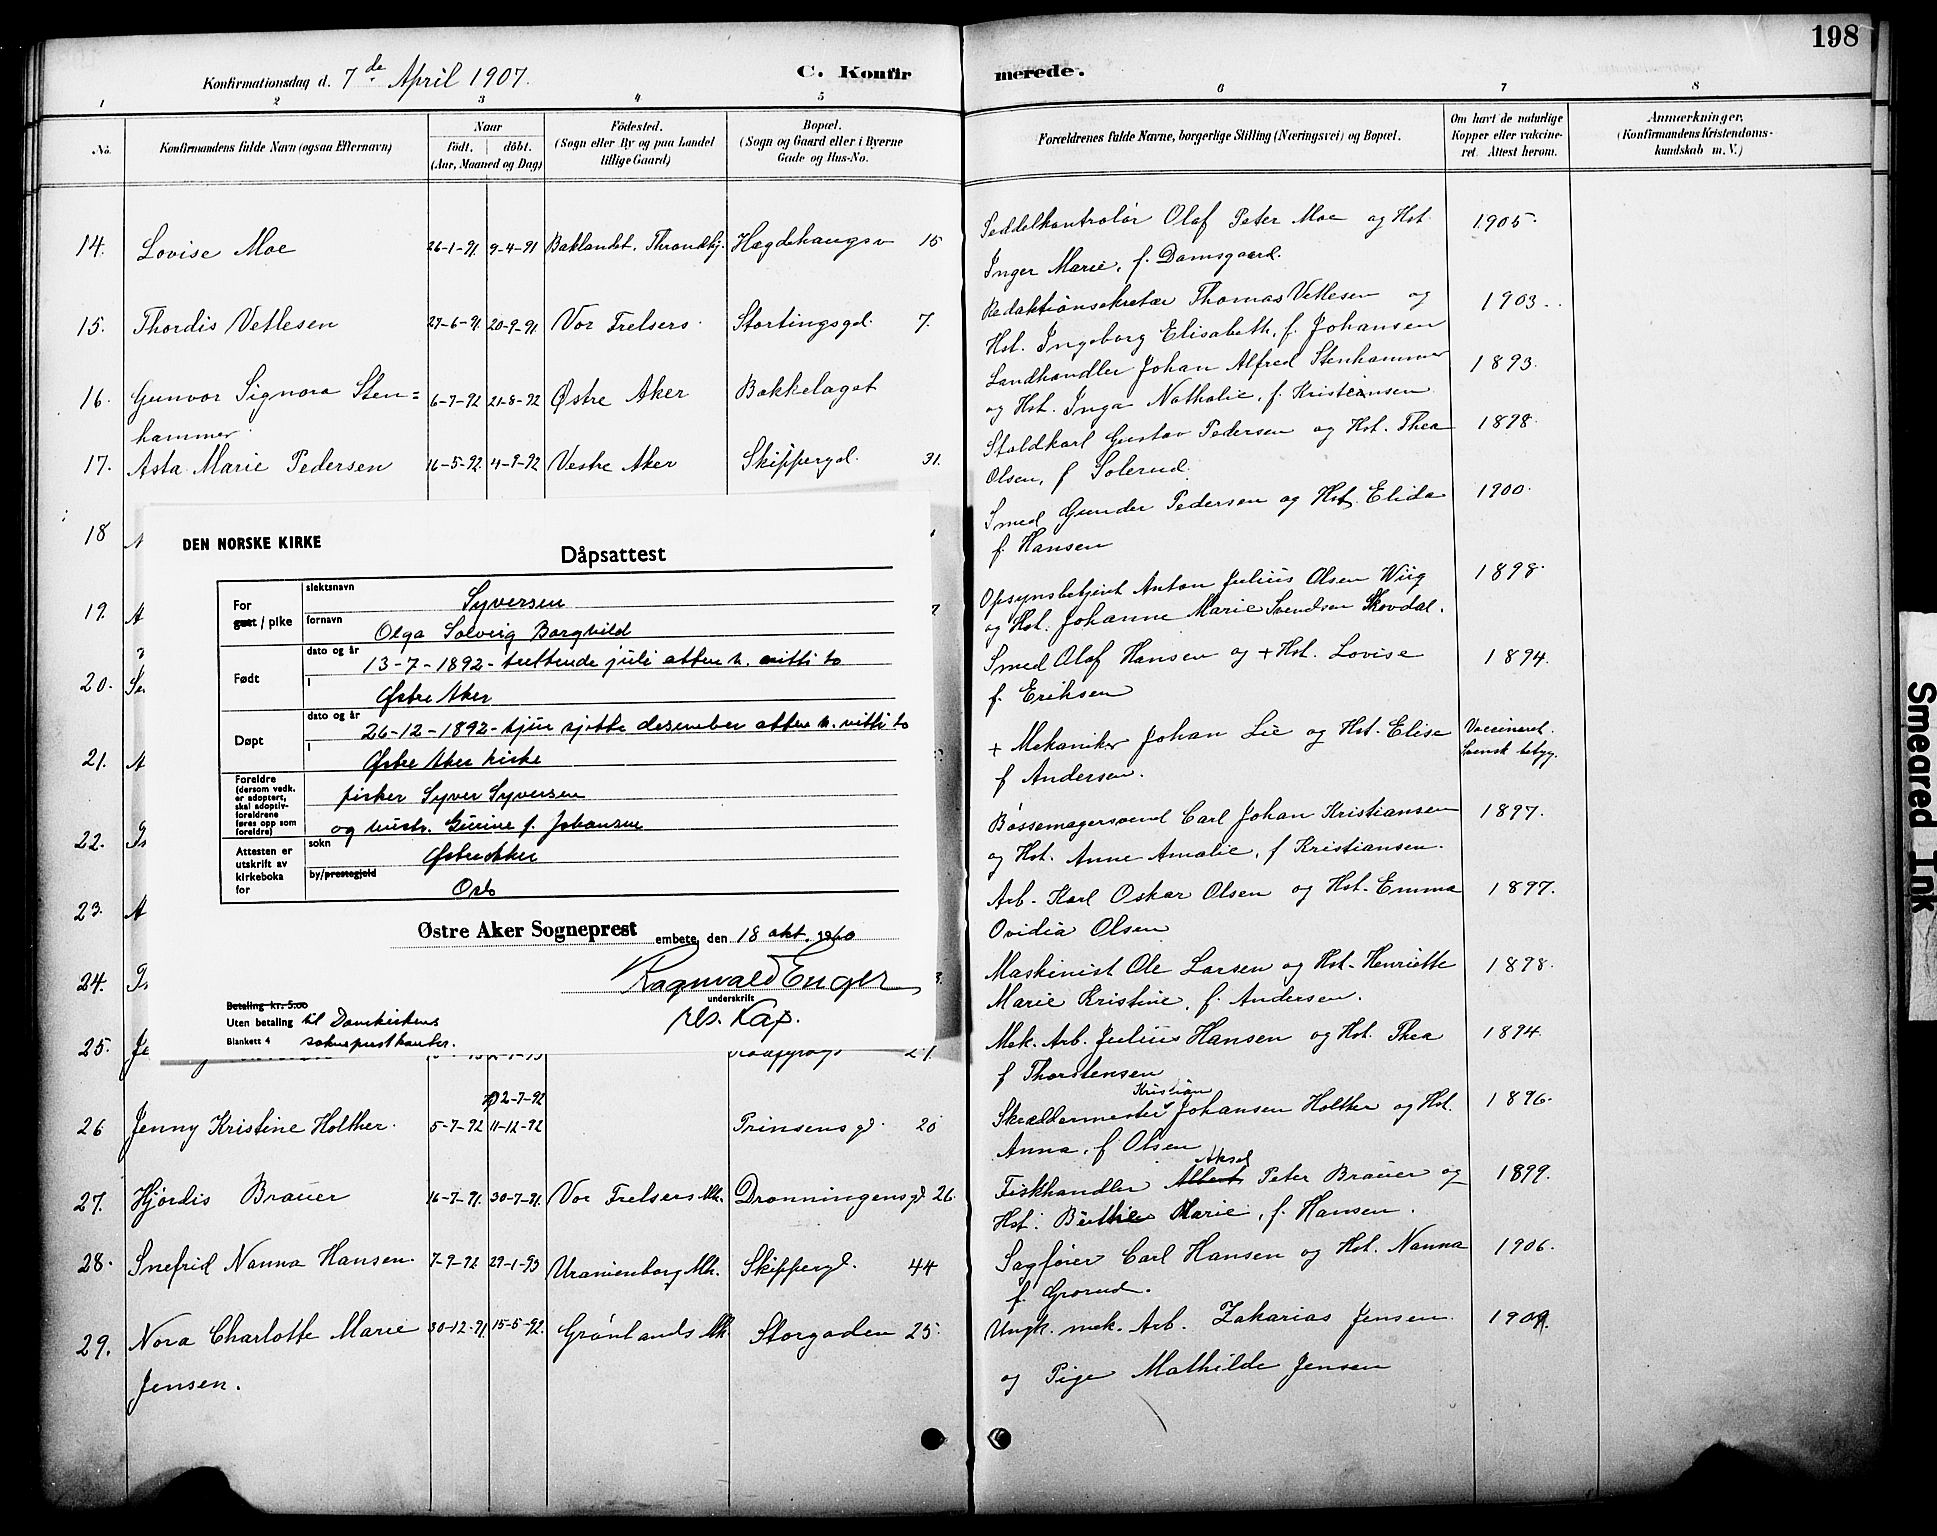 198
Konfirmationsdag d. 7de April 1907.
C. Konfir
merede.
1 2 3 4 5 6 7 8
No.
Konfirmandens fulde Navn (ogsaa Efternavn)
Naar
født. døbt.
(Aar, Maaned og Dag)
Fødested.
(Sogn eller By og paa Landet
tillige Gaard)
Bopæl.
(Sogn og Gaard eller i Byerne
Gade og Hus-No.
Forældrenes fulde Navne, borgerlige Stilling (Næringsvei) og Bopæl.
Om havt de naturlige
Kopper eller vakcine-
ret. Attest herom.
Anmærkninger,
(Konfirmandens Kristendoms-
kundskab m. V.)
14. Lovise Moe 26-1-91 9-4-91 Baklandet, Throndhj. Hægdehaugsv 15
Seddelkontrolør Olaf Peter Moe og Hst. 1905.
Inger Marie, f. Damsgaard.
15. Thordis Vetlesen 27-6-91 20-9-91 Vor Frelsers Stortingsgd. 7.
Redaktionsekretær Thomas Vetlesen og 1903.
Hst. Ingeborg Elisabeth, f. Johansen
16. Gunvor Signora Sten= 6-7-92 21-8-92 Østre Aker Bækkelaget
hammer
Landhandler Johan Alfred Stenhammer 1893.
og Hst. Inga Nathalie, f. Kristiansen
17. Asta Marie Pedersen 16-5-92 4-9-92 Vestre Aker Skippergd. 31.
Staldkarl Gustav Pedersen og Hst. Thea 1898.
Olsen, f Solerud.
18
Smed Gunder Pedersen og Hst. Elida 1900.
f. Hansen
19.
Opsynsbetjent Anton Julius Olsen Wiig 1898.
og Hst. Johanne Marie Svendsen Skovdal.
20.
Smed Olaf Hansen og + Hst. Lovise 1894.
f. Eriksen
21.
+ Mekaniker Johan Lie og Hst. Elise Vaccineret.
f Andersen. Svensk betyg.
22.
Bøssemagersvend Carl Johan Kristiansen 1897.
og Hst. Anne Amalie, f Kristiansen.
23.
Arb. Karl Oskar Olsen og Hst. Emma 1897.
Ovidia Olsen
24.
Maskinist Ole Larsen og Hst. Henriette 1898.
Marie Kristine, f. Andersen.
25.
Mek. Arb. Julius Hansen og Hst. Thea 1894.
f Thorstensen
26 Jenny Kristine Holther. 5-7-92 11-12-92 Prinsensgd. 20
Kristian
Skræddermester Johansen Holther og Hst. 1896.
Anna, f Olsen
27. Hjørdis Brauer 16-7-91 30-7-91 Vor Frelsers Mk. Dronningensgd 26.
Aksel
Fiskhandler Albert Peter Brauer og 1899.
Hst. Marie, f. Hansen.
28. Snefrid Nanna Hansen 7-9-92 29-1-93 Uranienborg Mk. Skippergd. 44
Sagfører Carl Hansen og Hst. Nanna 1906.
f. Grorud.
29. Nora Charlotte Marie 30-12-91 15-5-92 Grønlands Mk Storgaden 25.
Jensen.
Ungk. mek. Arb. Zakarias Jensen
og Pige Mathilde Jensen
DEN NORSKE KIRKE
Dåpsattest
For
gutt / pike
slektsnavn
Syversen
fornavn
Olga Solveig Borghild
Født
dato og år
13-7-1892 - trettende juli atten h. nitti to
i
Østre Aker
Døpt
dato og år
26-12-1892 - tjue sjette desember atten h. nitti to
i
Østre Aker kirke
Foreldre
(dersom vedk.
er adoptert,
skal adoptiv-
foreldrene
føres opp som
foreldre)
fisker Syver Syversen
og hustr. Gurine f. Johansen
Attesten er
utskrift av
kirkeboka
for
sokn
Østre Aker
by/prestegjeld
Oslo
Østre Aker Sogneprest embete, den 18 okt. 1960
Ragnvald Enger
underskrift
res. Kap.
Betaling kr. 5.00
Uten betaling til Domkirkens
Blankett 4 sokneprestkontor.
Smeared Ink